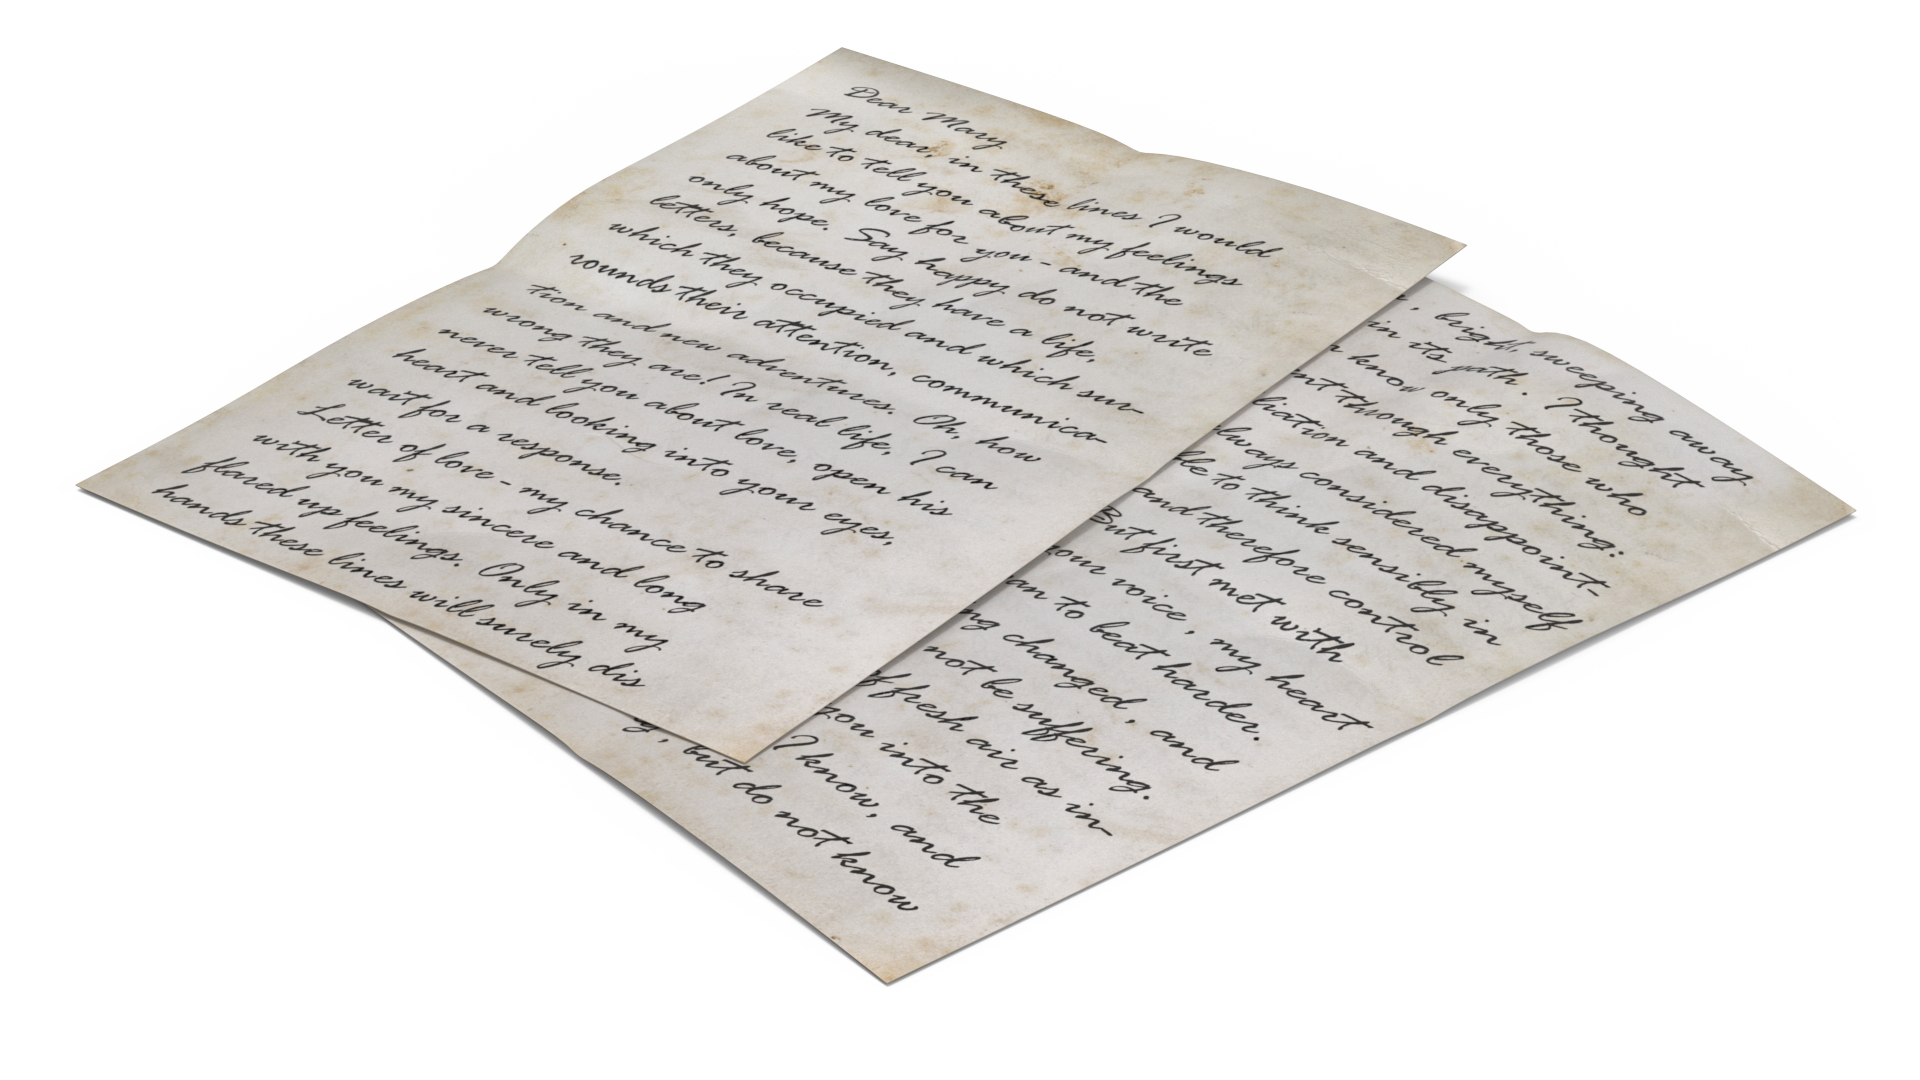 Dear Mary
My dear, in these lines I would
like to tell you about my feelings
about my love for you - and the
only hope. Say happy do not write
letters, because they have a life,
which they occupied and which sur-
rounds their attention, communica-
tion and new adventures. Oh, how
wrong they are! In real life, I can
never tell you about love, open his
heart and looking into your eyes,
wait for a response.
Letter of love - my chance to share
with you my sincere and long
flared up feelings. Only in my
hands these lines will surely dis
, bright, sweeping away
in its path. I thought
know only those who
nt though everything:
liation and disappoint-
lways considered myself
le to think sensibly in
and therefore control
But first met with
our voice, my heart
an to beat harder.
ng changed, and
not be suffering.
f fresh air as in-
you into the
I know, and
, but do not know